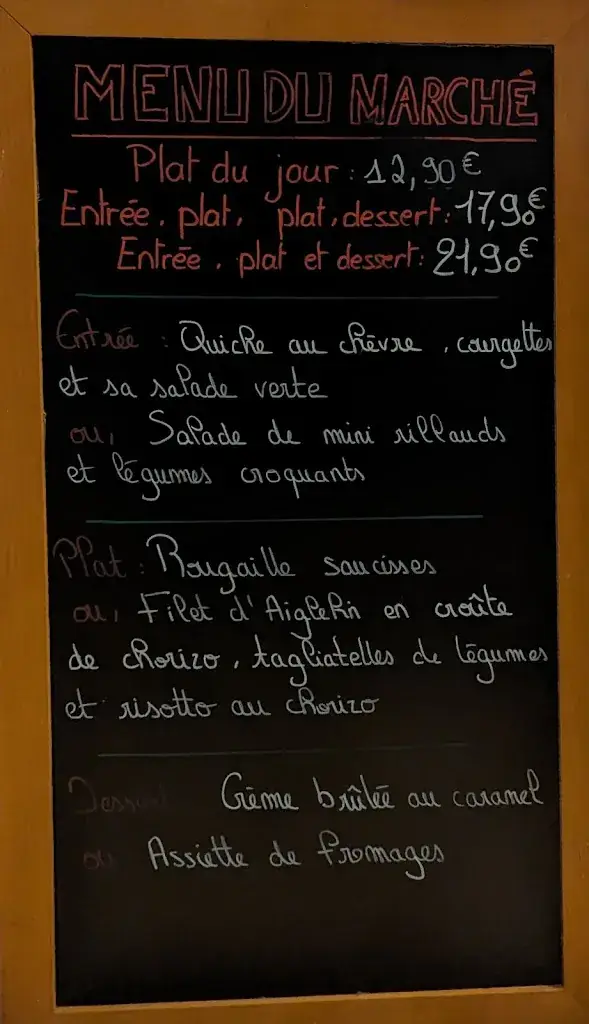 MENU DU MARCHÉ
Plat du jour : 12,90€
Entrée, plat, plat, dessert : 17,90€
Entrée, plat et dessert : 21,90€
Entrée : Quiche au chèvre, courgettes
et sa salade verte
ou, Salade de mini rillauds
et légumes croquants
Plat : Rougaille saucisses
ou, Filet d'Aiglefin en croûte
de chorizo, tagliatelles de légumes
et risotto au chorizo
Dessert Crème brûlée au caramel
ou Assiette de fromages